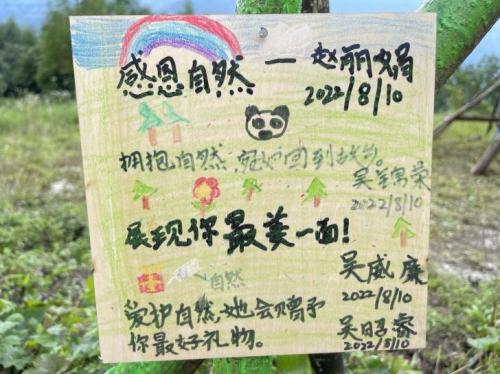 感恩自然 — 赵丽娟
2022/8/10
拥抱自然,宛如回到故乡。
吴羊常荣
2022/8/10
展现你最美一面!
吴威廉
2022/8/10
自然
爱护自然,她会赠予
你最好礼物。
吴日睿
2022/8/10